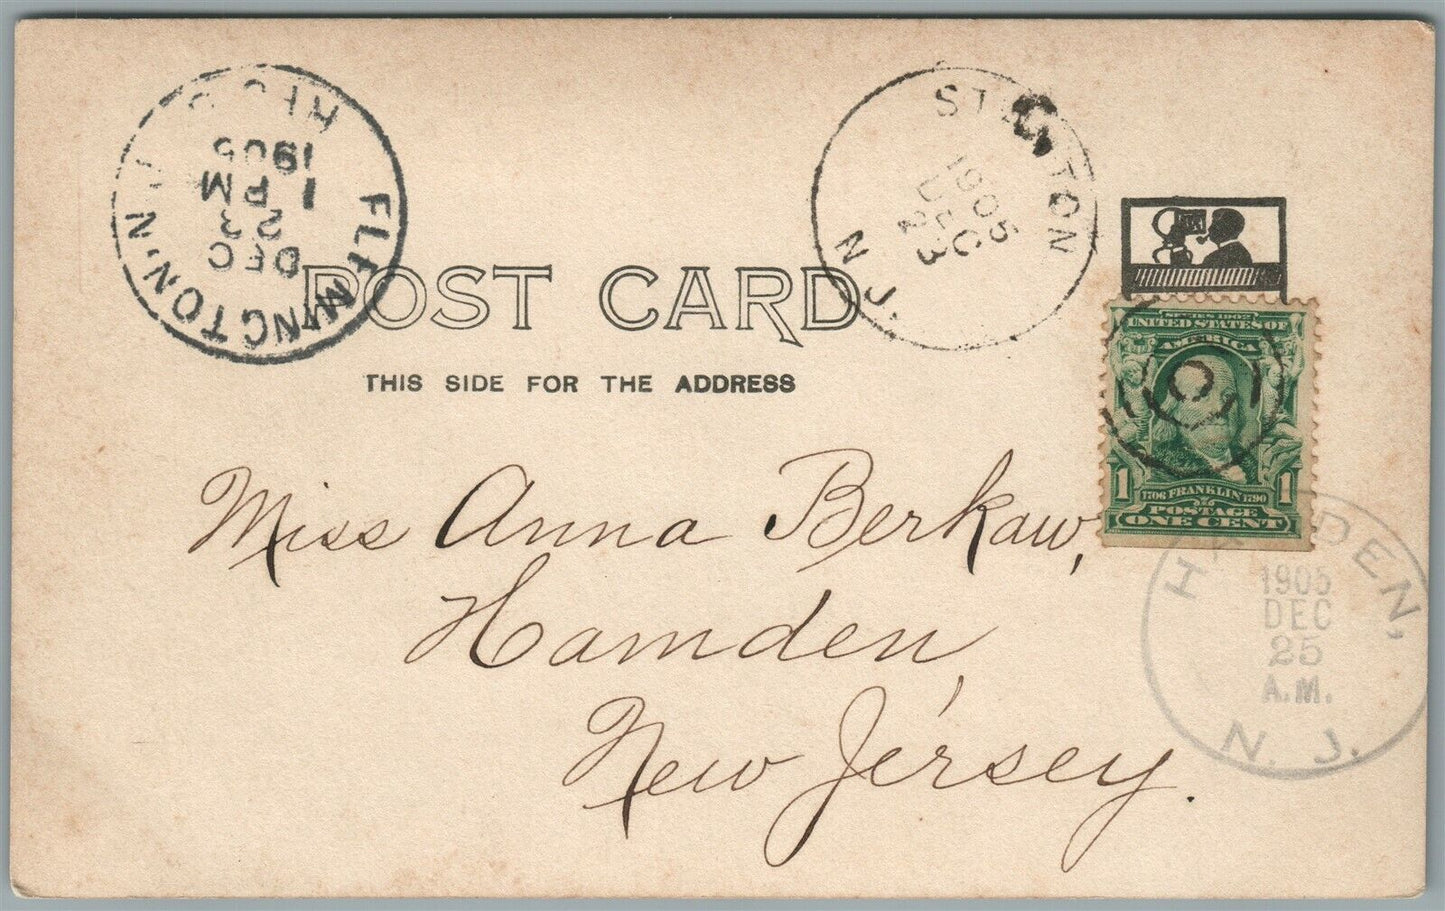 FLEMINGTON, N.J.
REC'D
DEC
23
1 PM
1905
STANTON
N.J.
1905
DEC
23
POST CARD
THIS SIDE FOR THE ADDRESS
SERIES 1902
UNITED STATES OF
AMERICA
1 1
1706 FRANKLIN 1790
POSTAGE
ONE CENT
Miss Anna Berkaw,
Hamden,
New Jersey.
HAMDEN,
1905
DEC
25
A.M.
N. J.